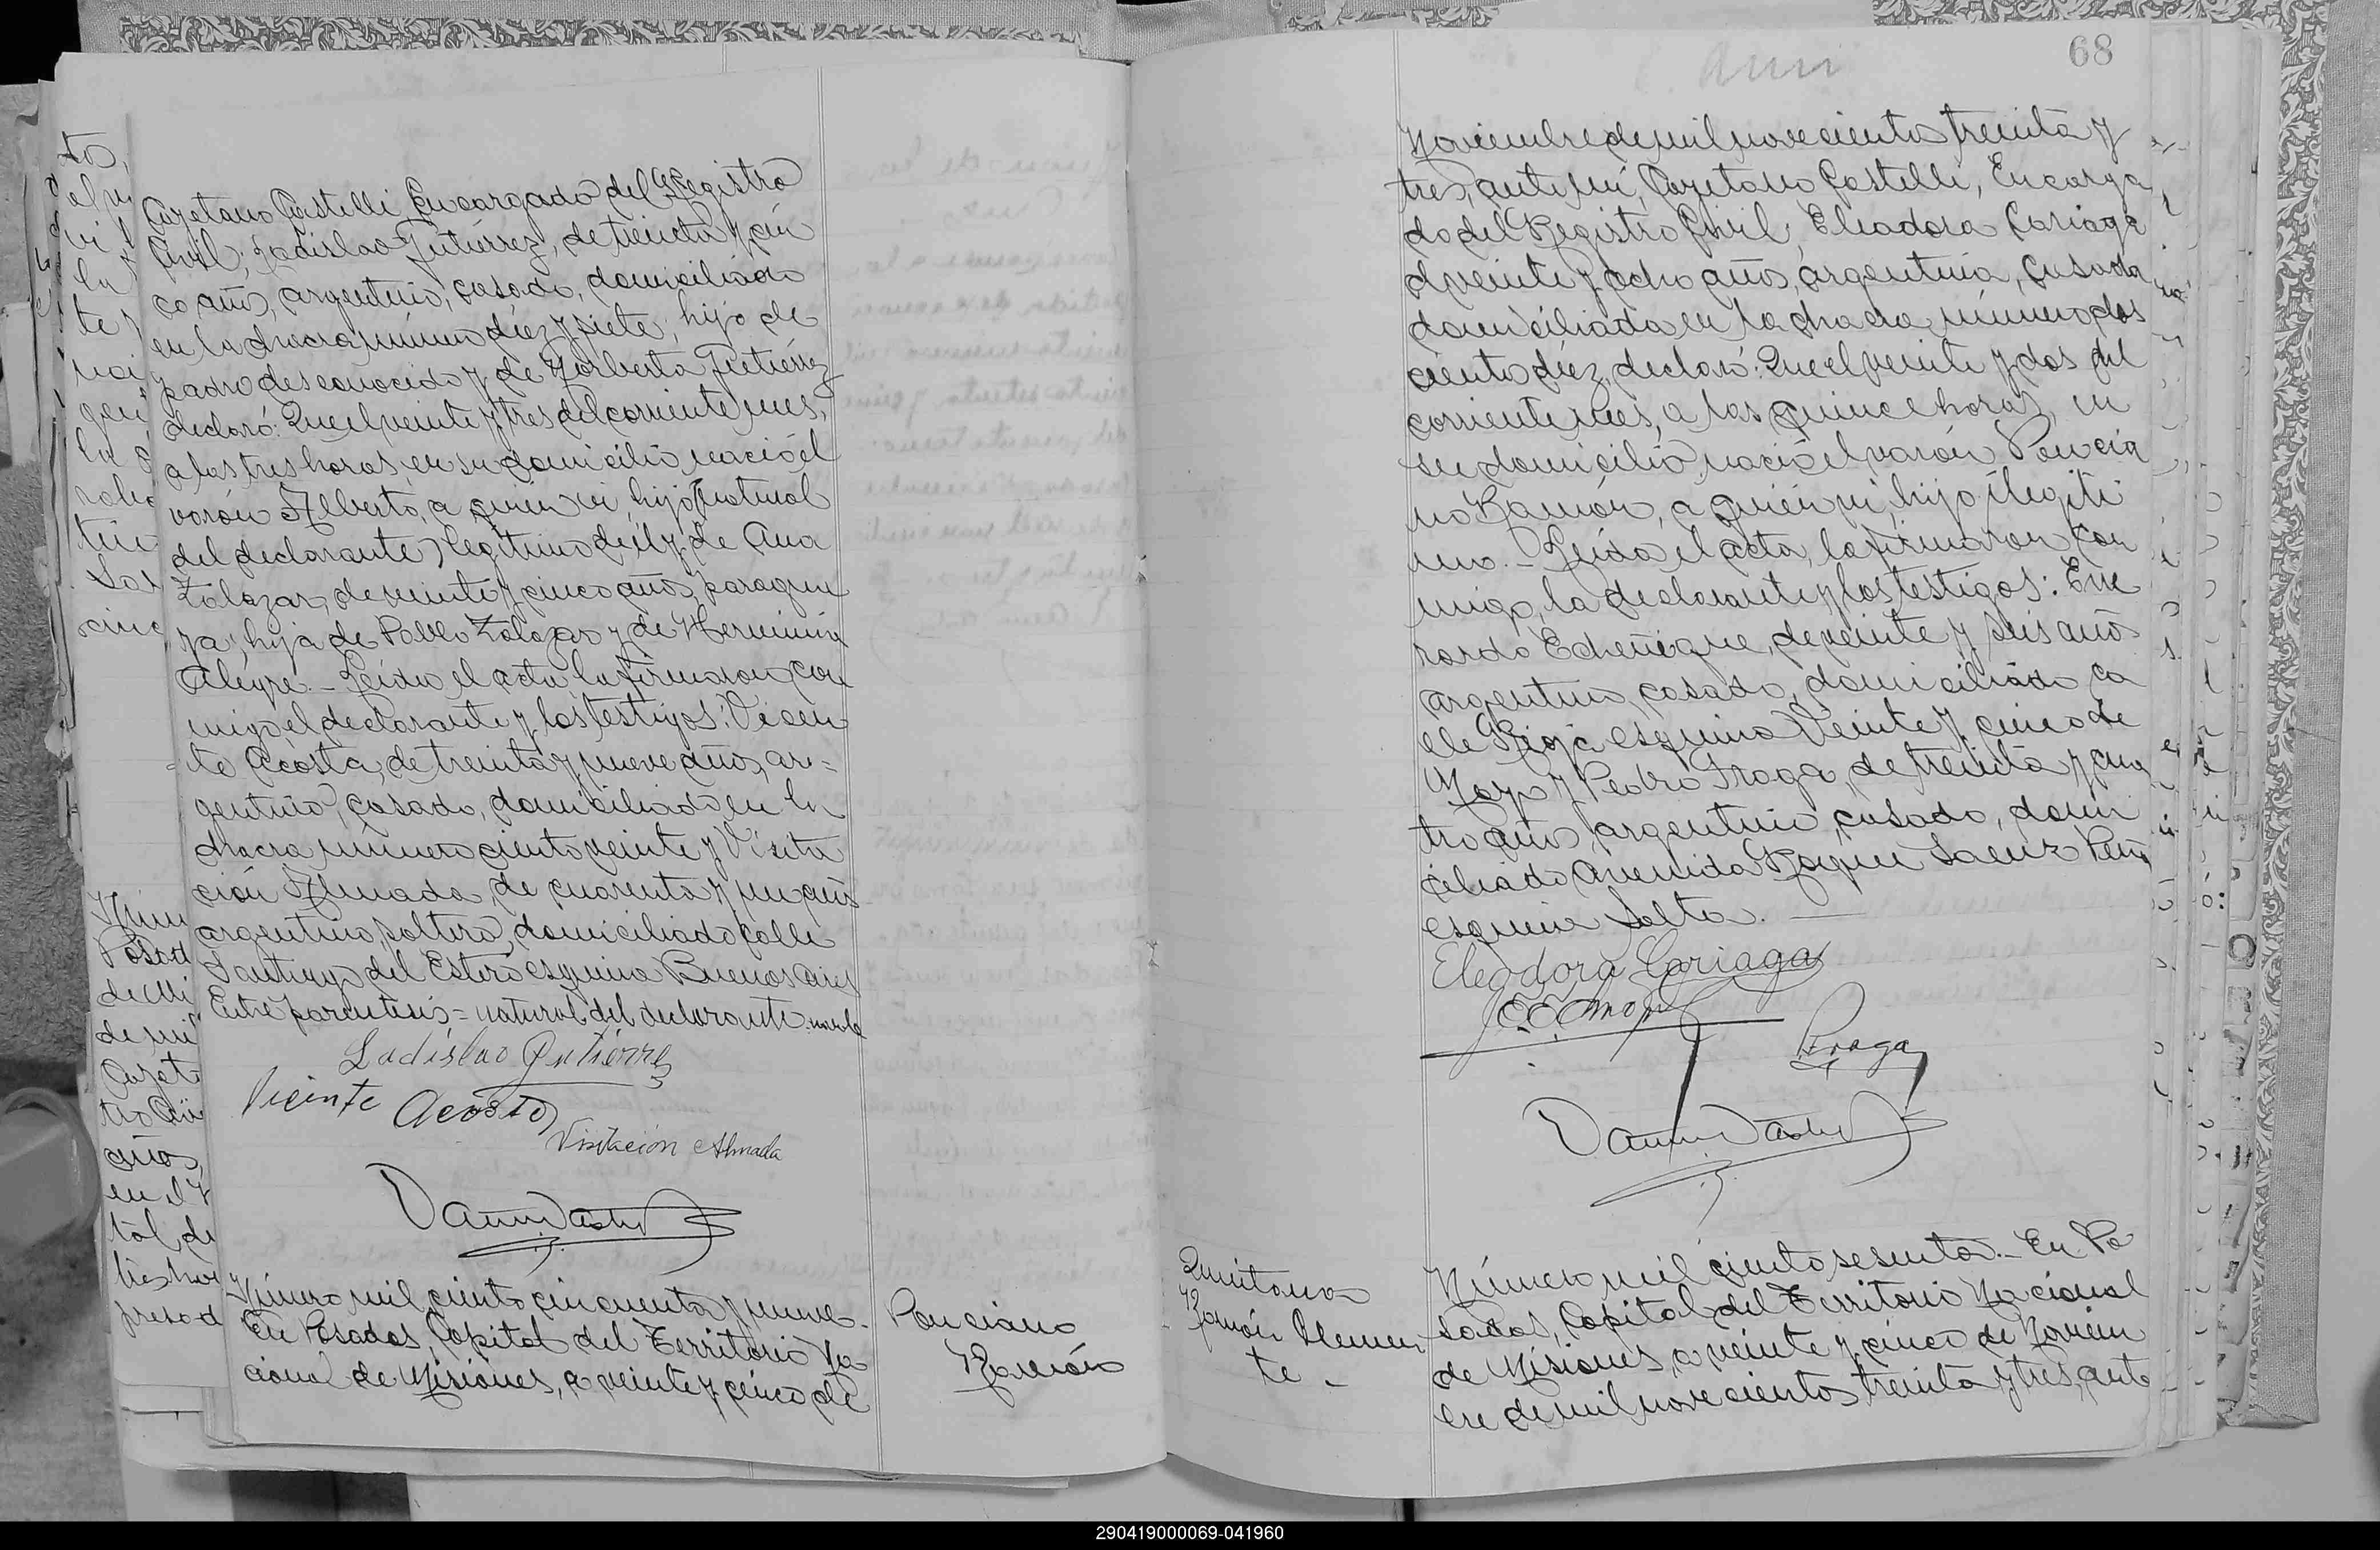 Cayetano Castelli, Encargado del Registro
Civil; Ladislao Gutiérrez, de treinta y cin
co años, argentino, casado, domiciliado
en la chacra número diez y siete, hijo de
padre desconocido y de Norberta Gutiérrez
declaró: Que el veinte y tres del corriente mes,
a las tres horas, en su domicilio nació el
varón Alberto, a quien vi, hijo (natural
del declarante) legítimo de él y de Ana
Zalazar, de veinte y cinco años, paragua
ya, hija de Pablo Zalazar y de Herminia
Alegre.- Leída el acta la firmaron con
migo, el declarante y los testigos: Vicen
te Acosta, de treinta y nueve años, ar=
gentino, casado, domiciliado en la
chacra número ciento veinte y Visita
ción Almada, de cuarenta y un años
argentino, soltero, domiciliado calle
Santiago del Estero esquina Buenos Aires
Entre paréntesis = natural del declarante. no vale
Ladislao Gutiérrez
Vicente Acosta
Visitación Almada
Número mil ciento cincuenta y nueve.
En Posadas, Capital del Territorio Na
cional de Misiones, a veinte y cinco de
Ponciano
Ramón
68
Noviembre de mil novecientos treinta y
tres, ante mí, Cayetano Castelli, Encarga
do del Registro Civil, Eleodora Cariaga
de veinte y ocho años, argentina, casada
domiciliada en la chacra número dos
cientos diez, declaró: Que el veinte y dos del
corriente mes, a las quince horas, en
su domicilio nació el varón Poncia
no Ramón, a quien vi, hijo ilegíti
mo.- Leída el acta, la firmaron con
migo, la declarante y los testigos: Eve
rardo Echenique, de veinte y seis años
argentino, casado, domiciliado ca
lle Rioja esquina Veinte y cinco de
Mayo y Pedro Fraga, de treinta y cua
tro años, argentino, casado, domi
ciliado Avenida Roque Saenz Peña
esquina Salta.
Eleodora Cariaga
Fraga
Quintana
Ramón Clemen
te -
Número mil ciento sesenta.- En Po
sadas, Capital del Territorio Nacional
de Misiones, a veinte y cinco de Noviem
bre de mil novecientos treinta y tres, ante
290419000069-041960